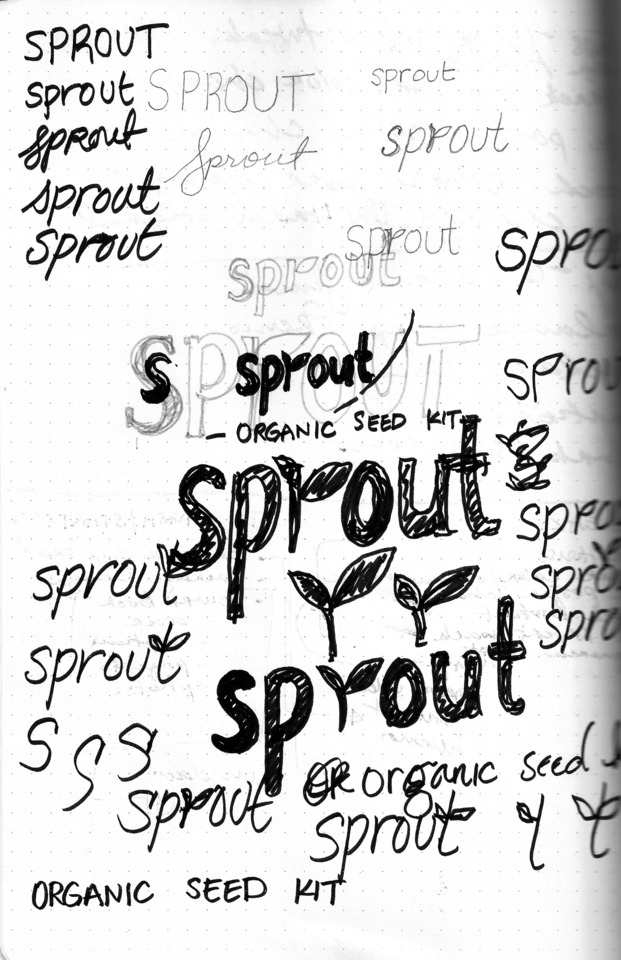 SPROUT
sprout SPROUT sprout
sprout sprout sprout
sprout
sprout sprout spro
sprout
SPROUT
s sprout sprou
ORGANIC SEED KIT
sprout
spro
sprout spro
spro
sprout sprout
S S S
OR organic seed
sprout sprout
ORGANIC SEED KIT